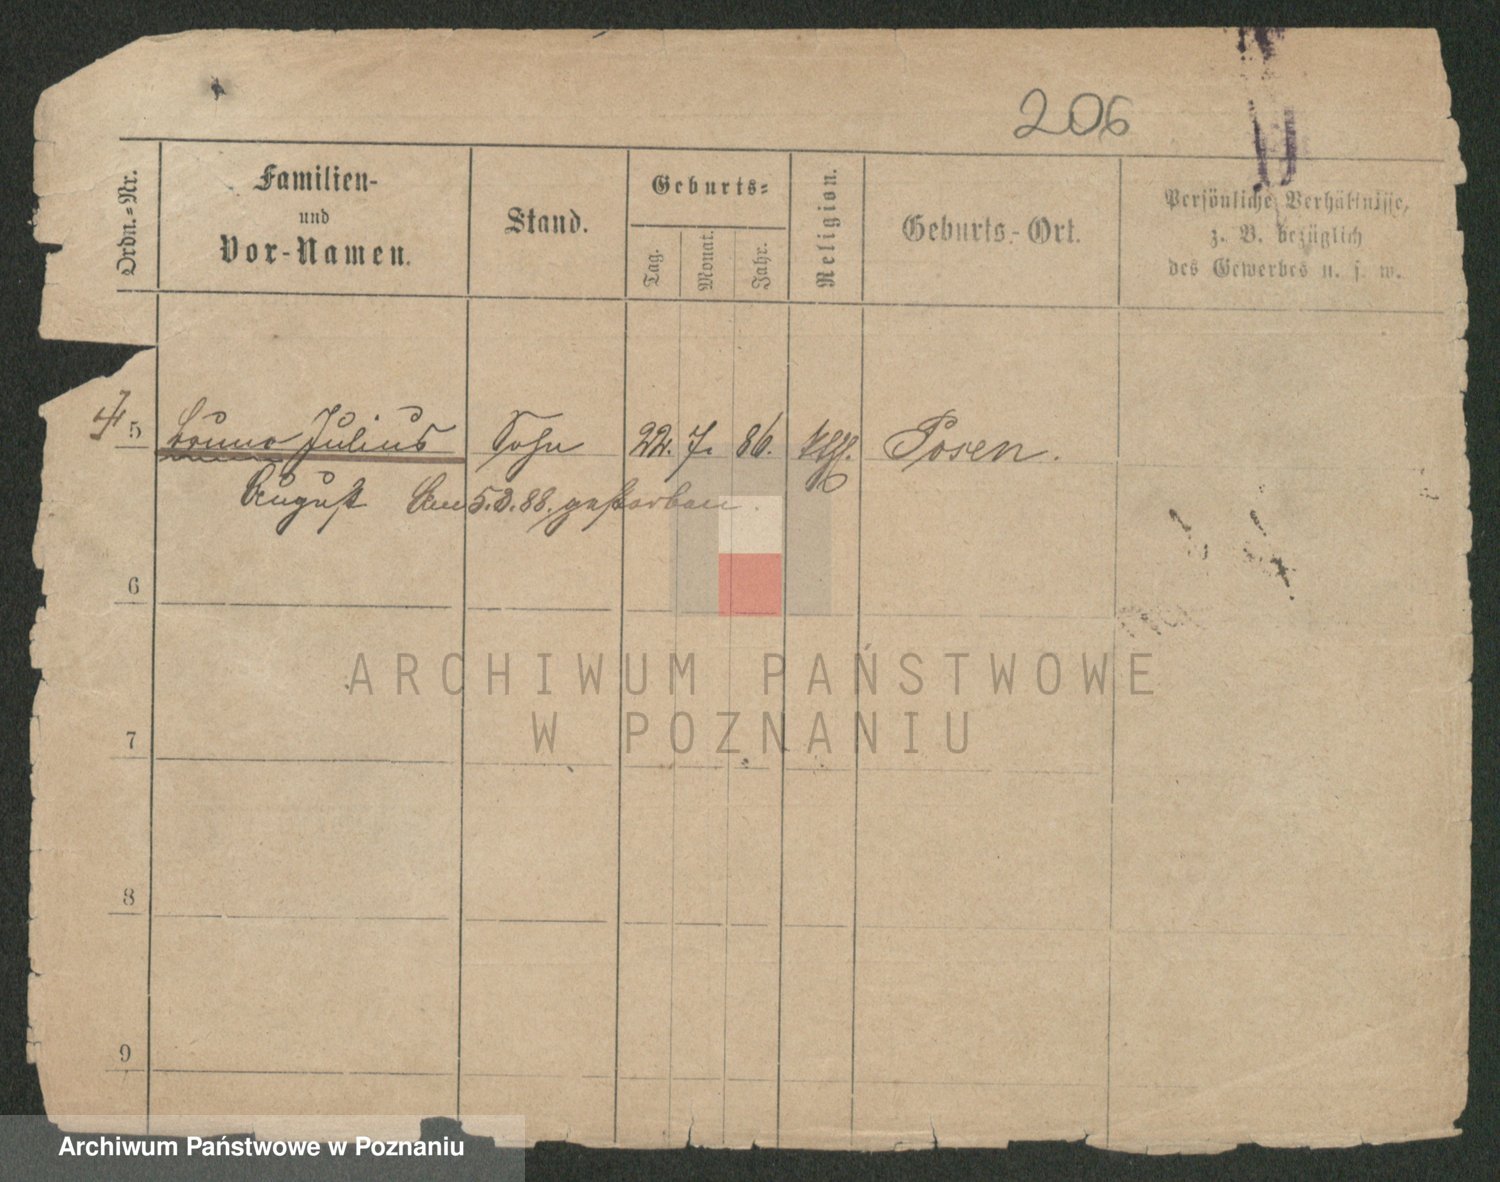 206
Ordn.-Nr.
Familien-
und
Vor-Namen.
Stand.
Geburts-
Tag.
Monat.
Jahr.
Religion.
Geburts-Ort.
Persönliche Verhältnisse,
z. B. bezüglich
des Gewerbes u. s. w.
5 Bruno Julius Sohn 22. 7. 86. Posen.
August Am 5.2.88. gestorben.
6
7
8
9
ARCHIWUM PAŃSTWOWE
W POZNANIU
Archiwum Państwowe w Poznaniu